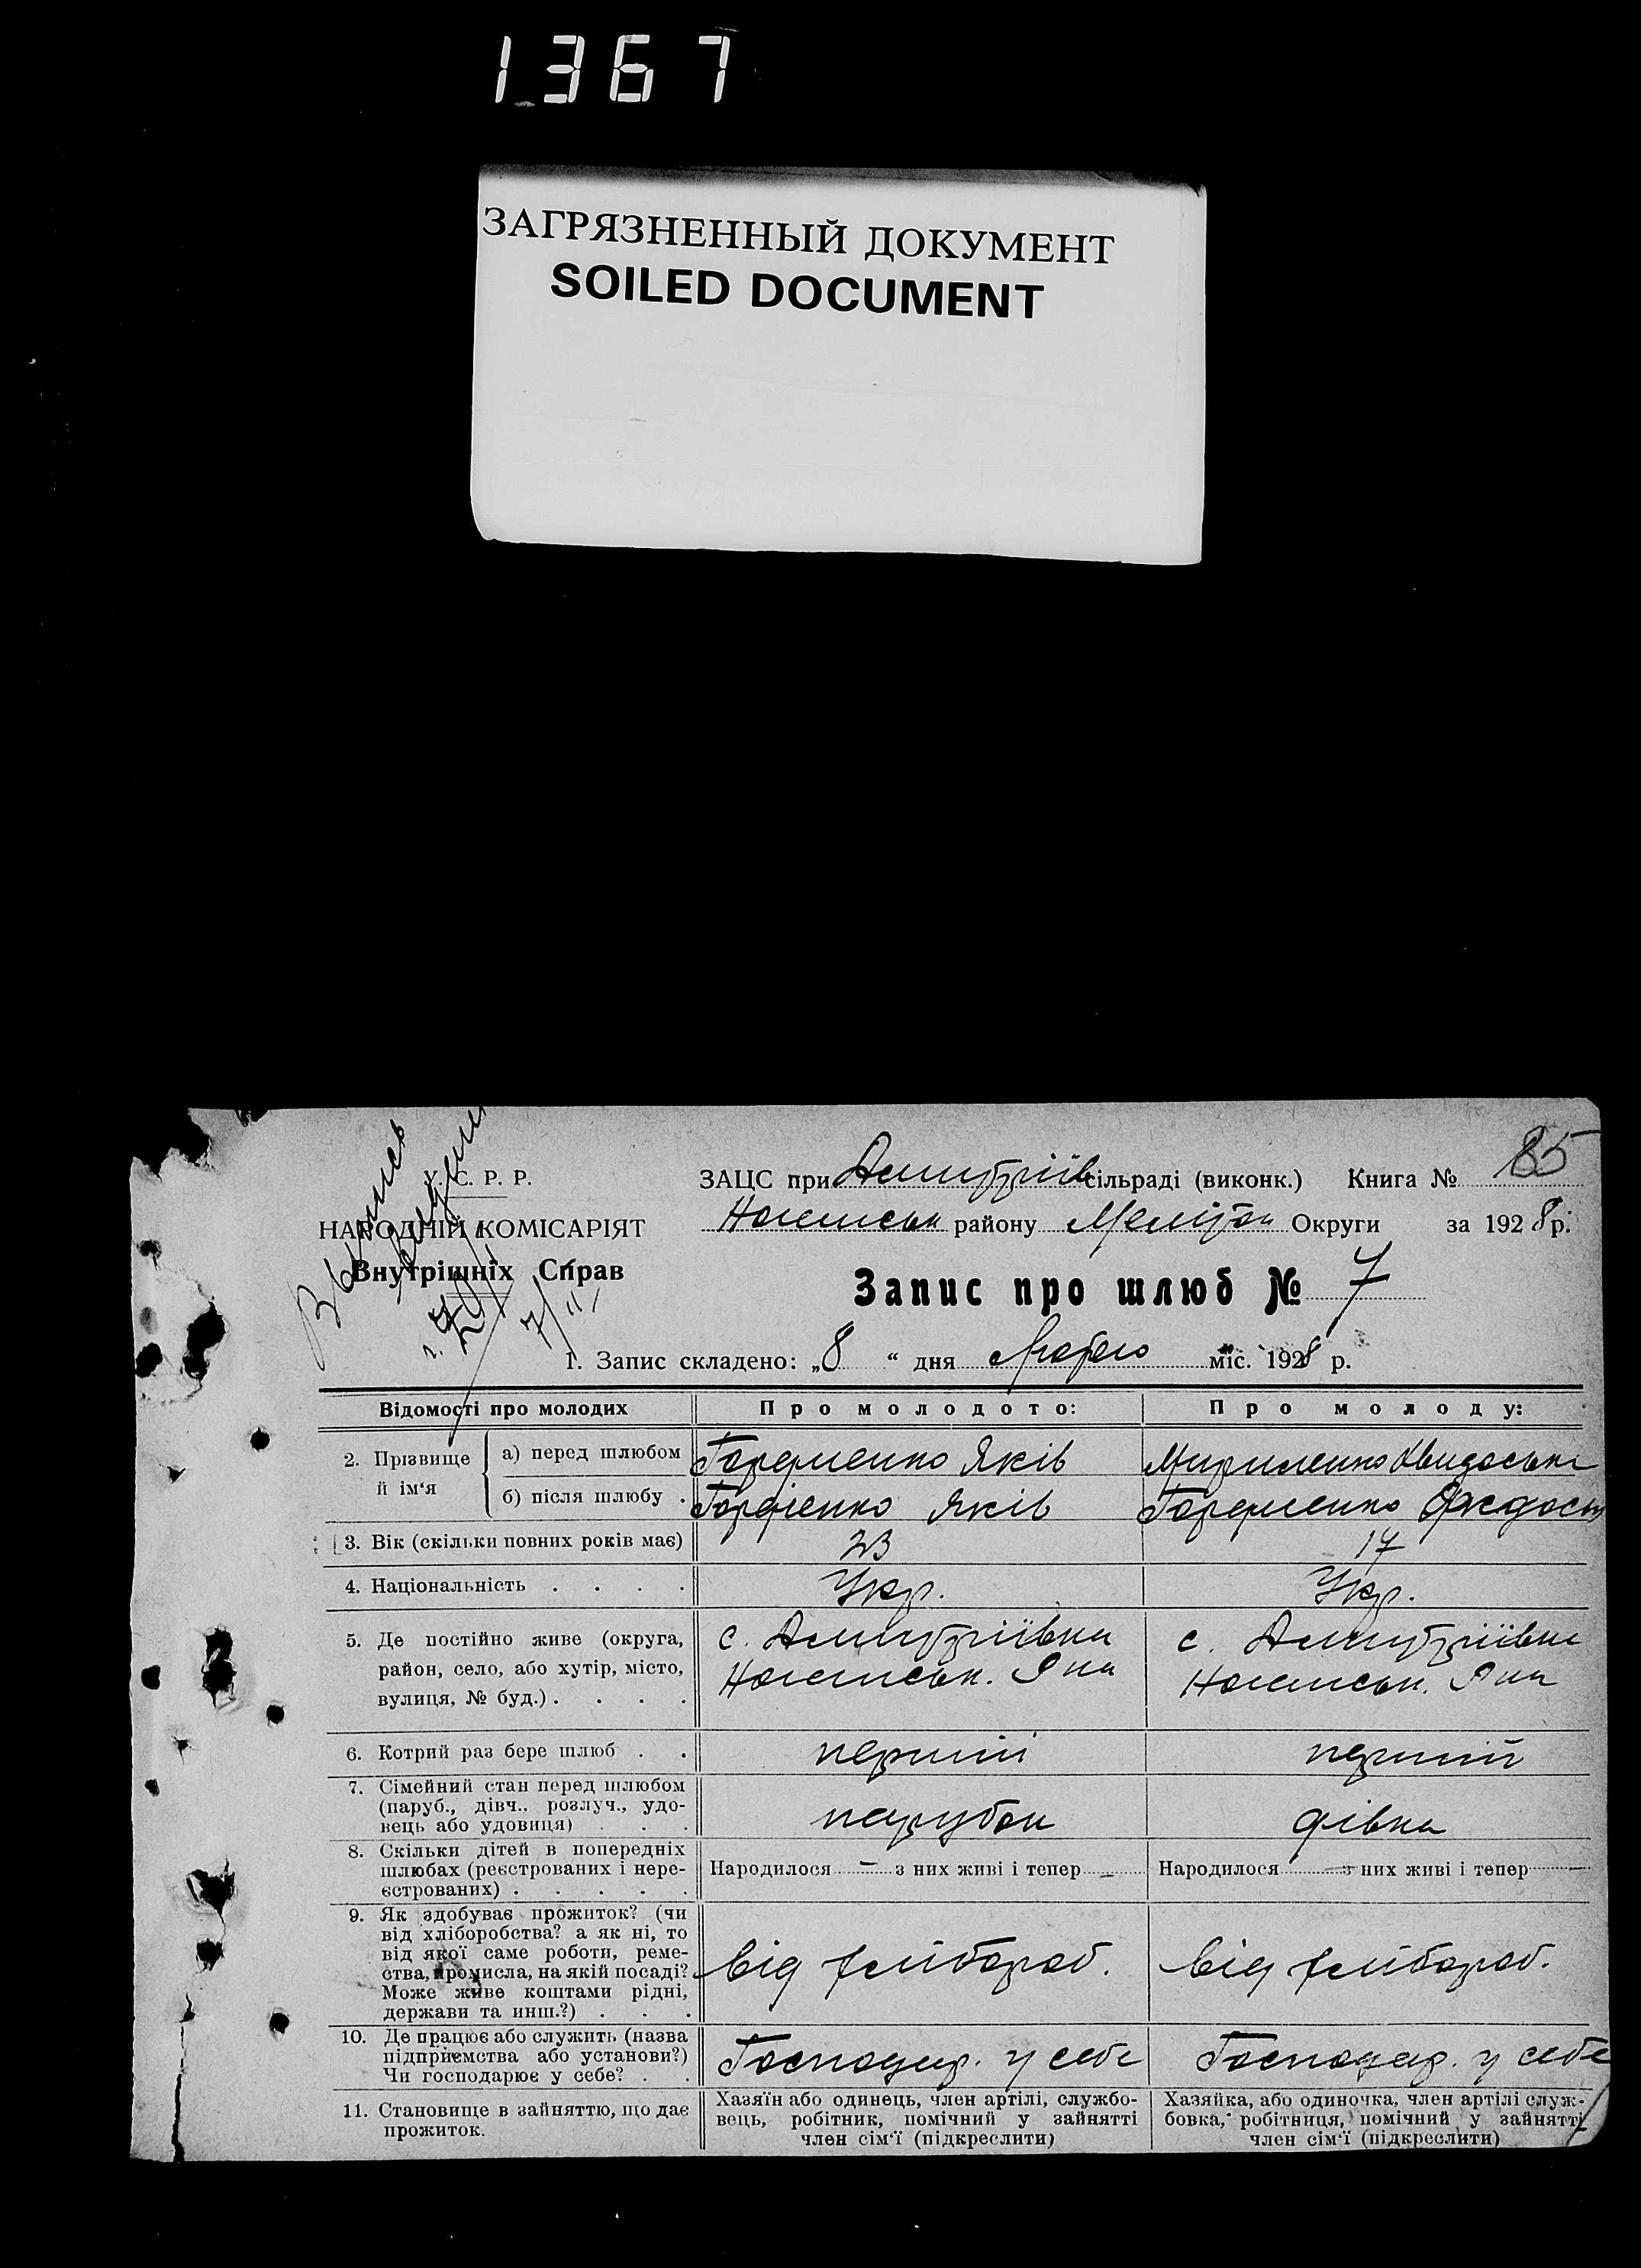 1367
ЗАГРЯЗНЕННЫЙ ДОКУМЕНТ
SOILED DOCUMENT
У. С. Р. Р.
НАРОДНІЙ КОМІСАРІЯТ
Внутрішніх Справ
Выпись
7/II
ЗАЦС при Дмитріїв сільраді (виконк.) Книга № 85
району Меліт Округи за 1928 р.
Запис про шлюб № 7
1. Запис складено: „8“ дня Лютого міс. 1928 р.
Відомості про молодих Про молодого: Про молоду:
2. Прізвище й ім‘я
а) перед шлюбом Гордієнко Яків
б) після шлюбу . Гордієнко Яків Гордієнко
3. Вік (скільки повних років має) 23 17
4. Національність . . . . Укр. Укр.
5. Де постійно живе (округа, с. Дмитріївка с. Дмитріївка
район, село, або хутір, місто,
вулиця, № буд.) . . . .
6. Котрий раз бере шлюб . . перший перший
7. Сімейний стан перед шлюбом
(паруб., дівч.. розлуч., удо-
вець або удовиця) . . . парубок дівка
8. Скільки дітей в попередніх
шлюбах (реєстрованих і нере-
єстрованих) . . . . .
Народилося — з них живі і тепер — Народилося — з них живі і тепер —
9. Як здобуває прожиток? (чи
від хліборобства? а як ні, то
від якої саме роботи, реме-
ства, промисла, на якій посаді?
Може живе коштами рідні,
держави та инш.?) . . .
від хлібороб. від хлібороб.
10. Де працює або служить (назва
підприємства або установи?)
Чи господарює у себе? . .
Господар. у себе Господар. у себе
11. Становище в зайняттю, що дає
прожиток.
Хазяїн або одинець, член артілі, службо-
вець, робітник, помічний у зайнятті
член сім‘ї (підкреслити)
Хазяйка, або одиночка, член артілі служ-
бовка, робітниця, помічний у зайнятті
член сім‘ї (підкреслити)